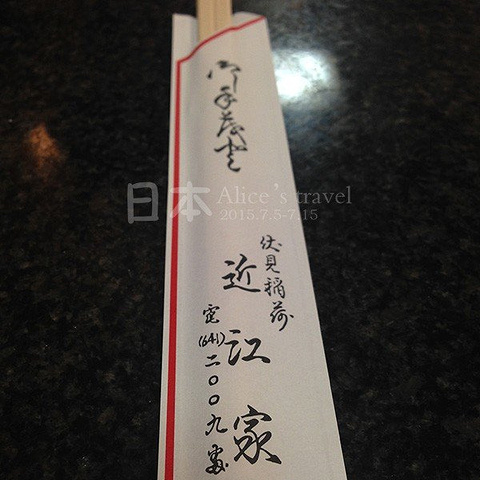 御手茂登
日本 Alice's travel
2015.7.5-7.15
伏見稲荷
近江家
電(641)二〇〇九番